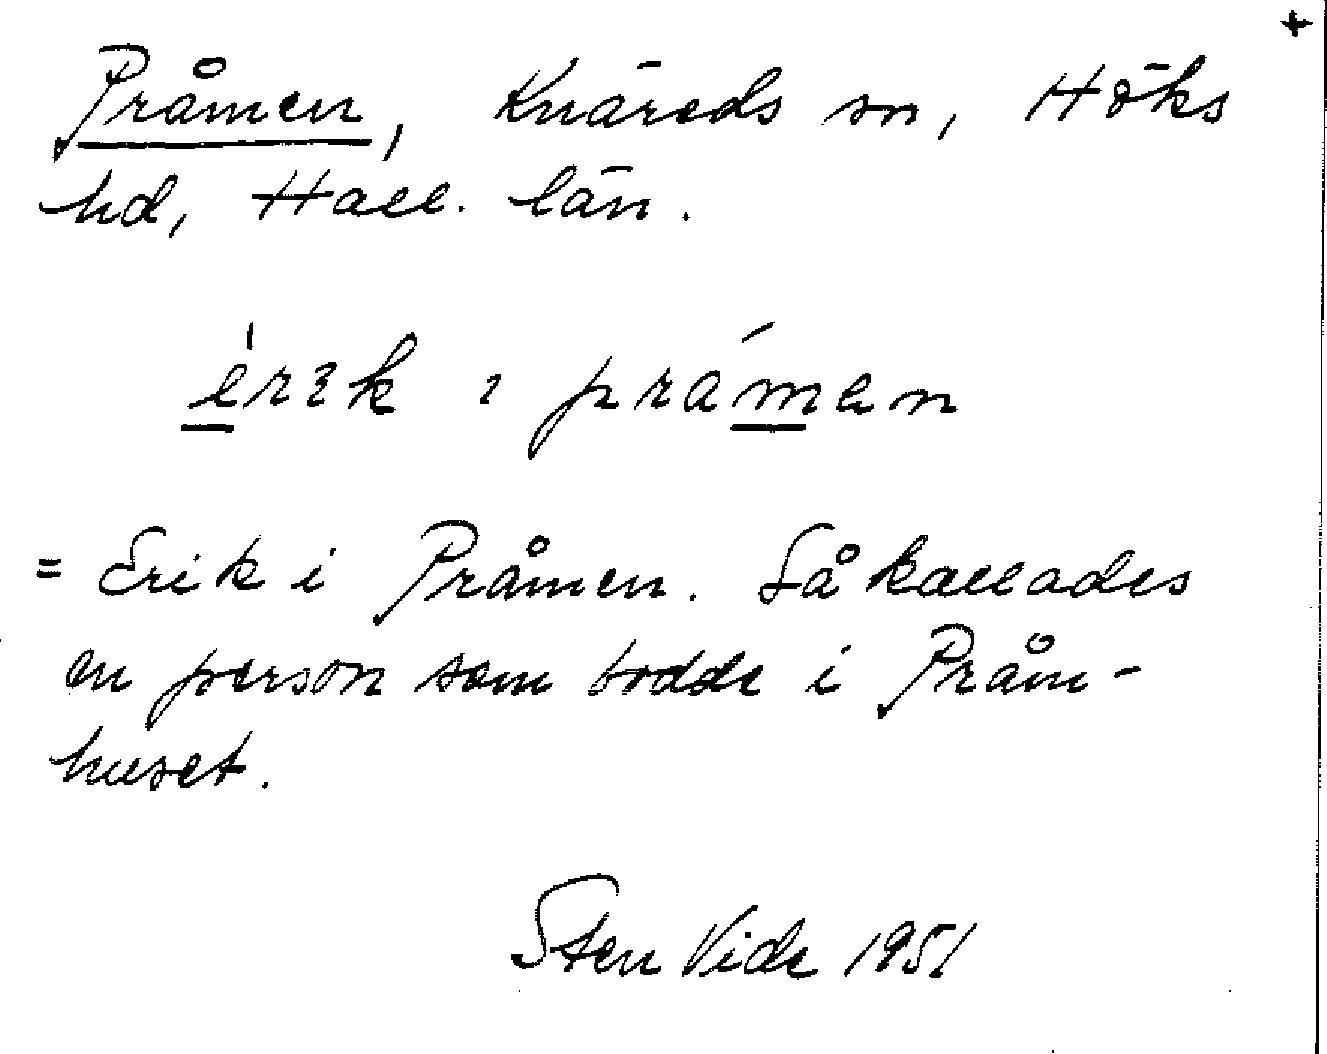 +
Pråmen, Knäreds sn, Höks
hd, Hall. län.
érɩk ɩ prámen
= Erik i Pråmen. Så kallades
en person som bodde i Pråm-
huset.
Sten Vide 1951